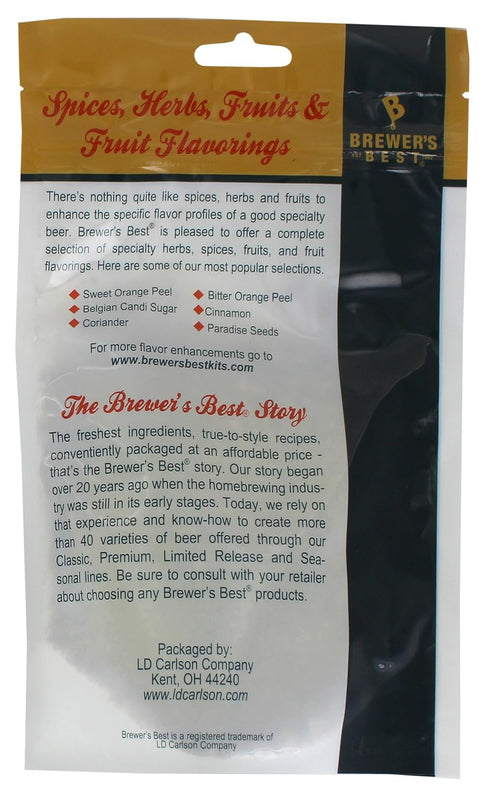 Spices, Herbs, Fruits &
Fruit Flavorings
B
BREWER'S
BEST®
There's nothing quite like spices, herbs and fruits to
enhance the specific flavor profiles of a good specialty
beer. Brewer's Best® is pleased to offer a complete
selection of specialty herbs, spices, fruits, and fruit
flavorings. Here are some of our most popular selections.
Sweet Orange Peel
Belgian Candi Sugar
Coriander
Bitter Orange Peel
Cinnamon
Paradise Seeds
For more flavor enhancements go to
www.brewersbestkits.com
The Brewer's Best® Story
The freshest ingredients, true-to-style recipes,
conventiently packaged at an affordable price -
that's the Brewer's Best® story. Our story began
over 20 years ago when the homebrewing indus-
try was still in its early stages. Today, we rely on
that experience and know-how to create more
than 40 varieties of beer offered through our
Classic, Premium, Limited Release and Sea-
sonal lines. Be sure to consult with your retailer
about choosing any Brewer's Best® products.
Packaged by:
LD Carlson Company
Kent, OH 44240
www.ldcarlson.com
Brewer's Best is a registered trademark of
LD Carlson Company